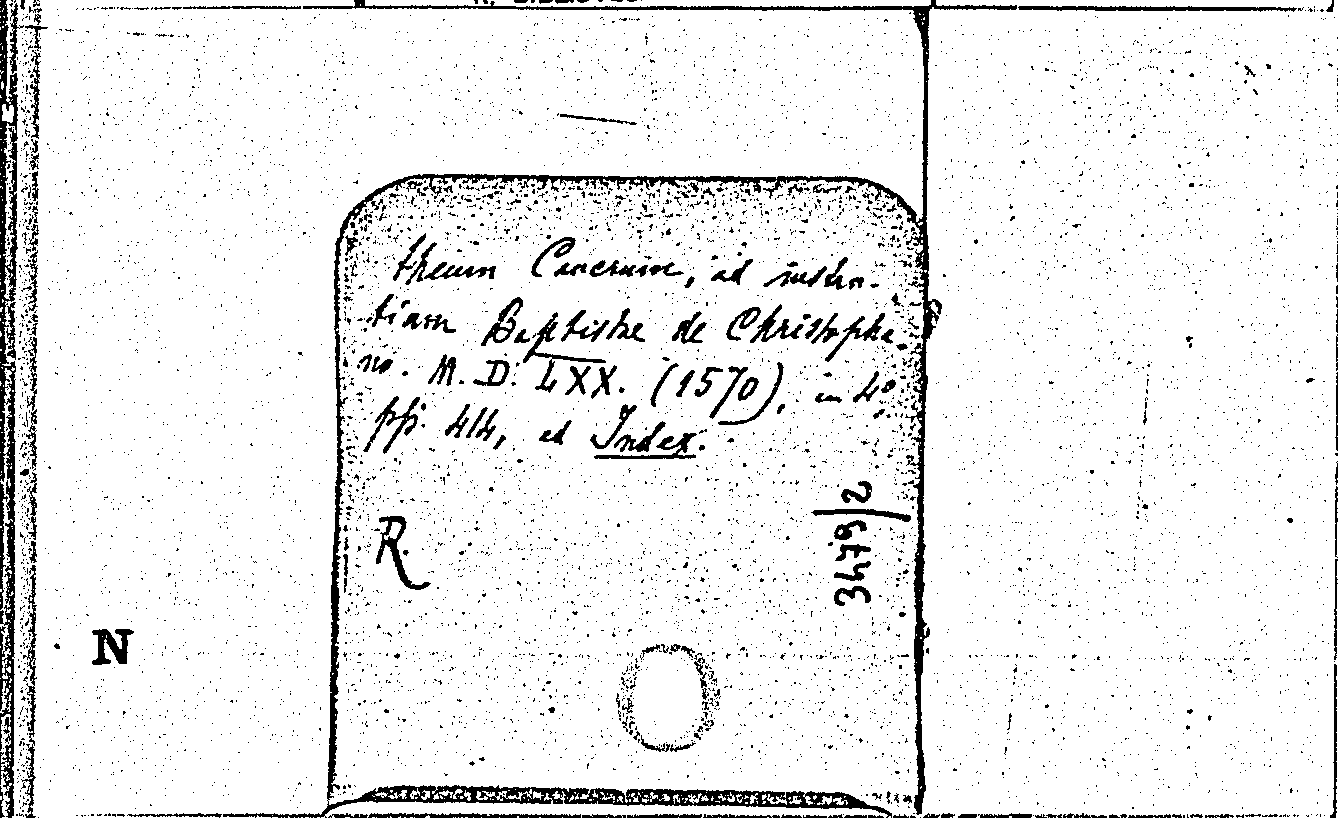 theum Cancerum, ad instan-
tiam Baptistae de Christopha-
no. M.D. LXX. (1570), in 4º,
pp. 414, ed Index.
R.
3479/2
N